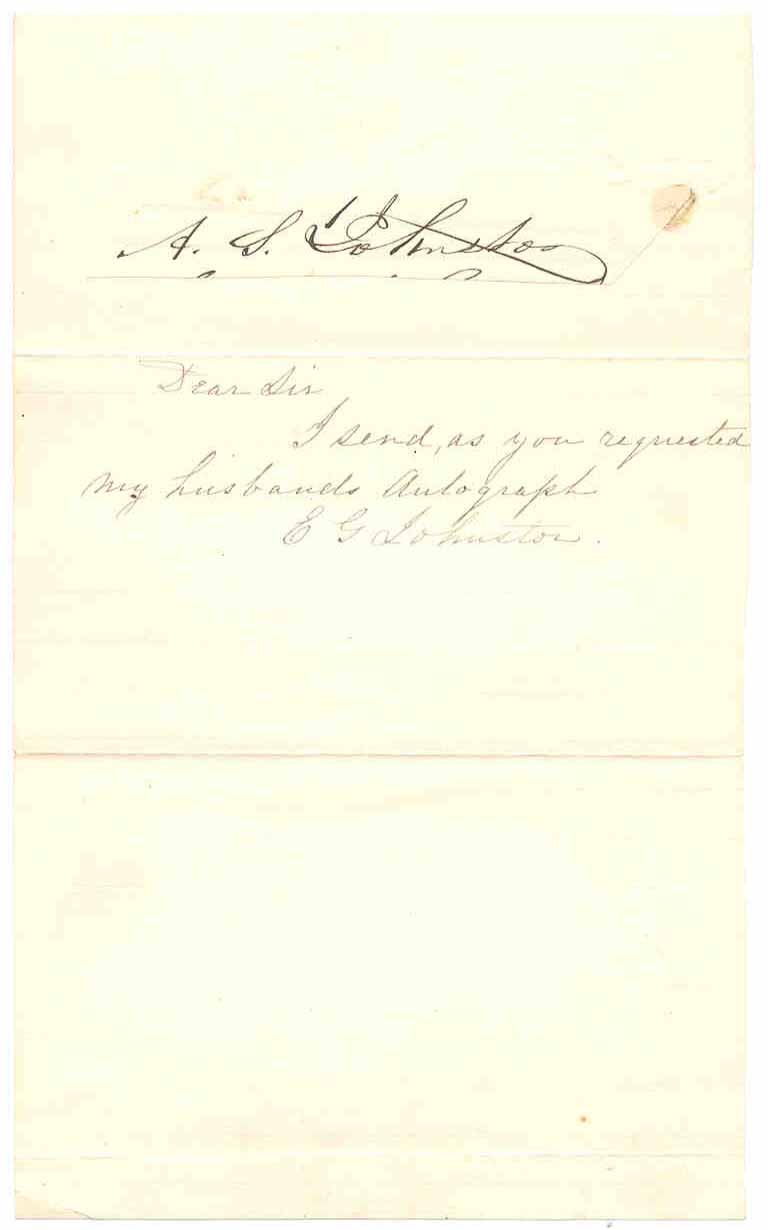 A. S. Johnston
Dear Sir
I send, as you requested
my husbands Autograph
E G Johnston.